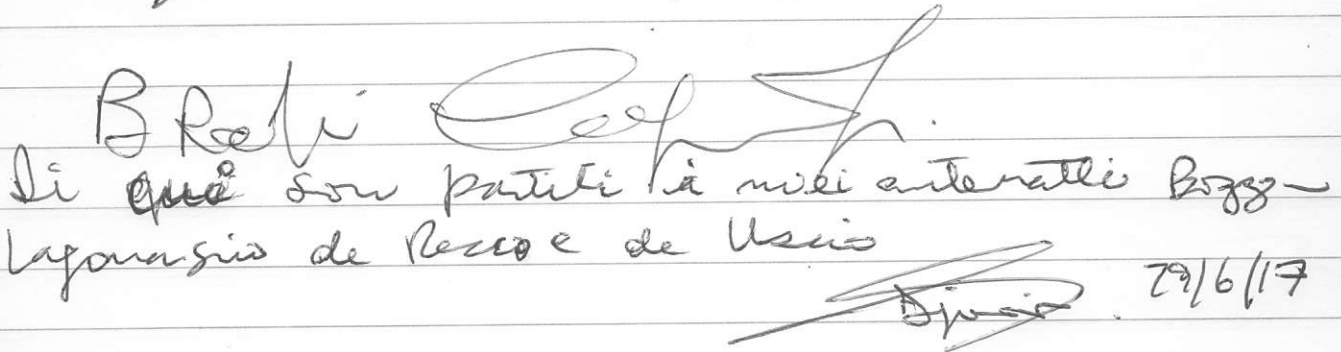 Di quà son partiti i miei antenatti Bozzo-
Lagomarsino de Recco e de Uscio
29/6/17